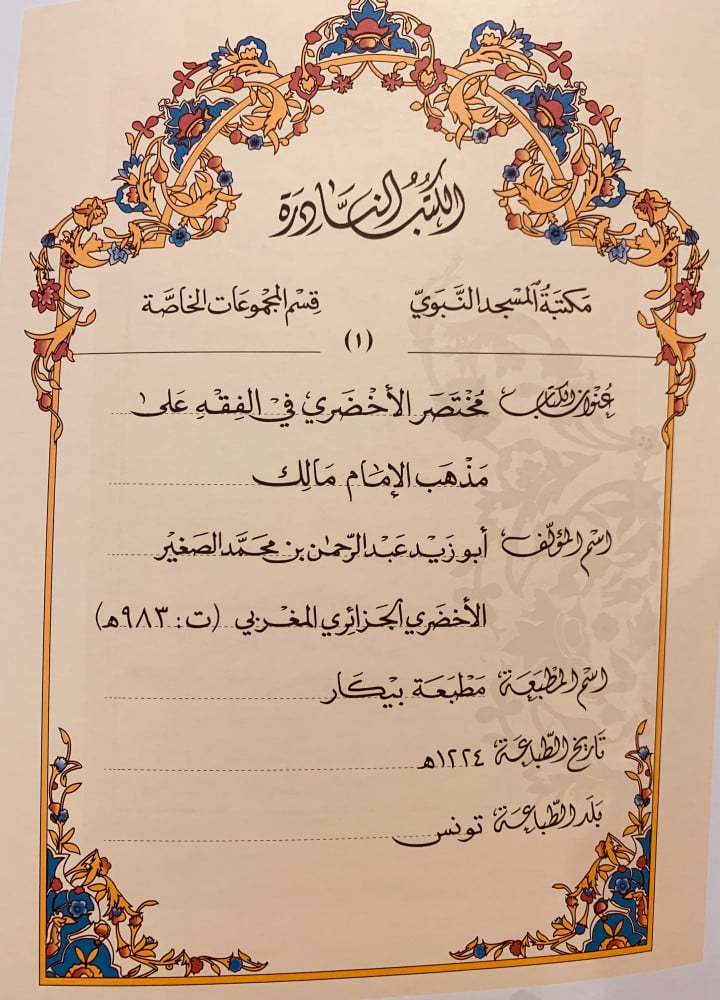 الكُتُبُ النَّادِرَة
مَكتَبَةُ المَسجد النَّبَوِيّ قِسْم المَجْمُوعَات الخاصَّة
(١)
عُنْوان الكتَاب مُخْتَصَر الأَخْضَرِي فِي الفِقْهِ عَلى
مَذْهَب الإمَام مَالِك
اسْم المُؤلِّف أبو زَيْد عَبد الرَّحمٰن بن محَمَّد الصَغيْر
الأخضَري الجَزائري المَغْربي (ت: ٩٨٣هـ)
اسْم المَطْبَعَة مَطْبَعَة بيْكَار
تَاريخ الطِّبَاعَة ١٢٢٤هـ
بَلَد الطِّبَاعَة تونس